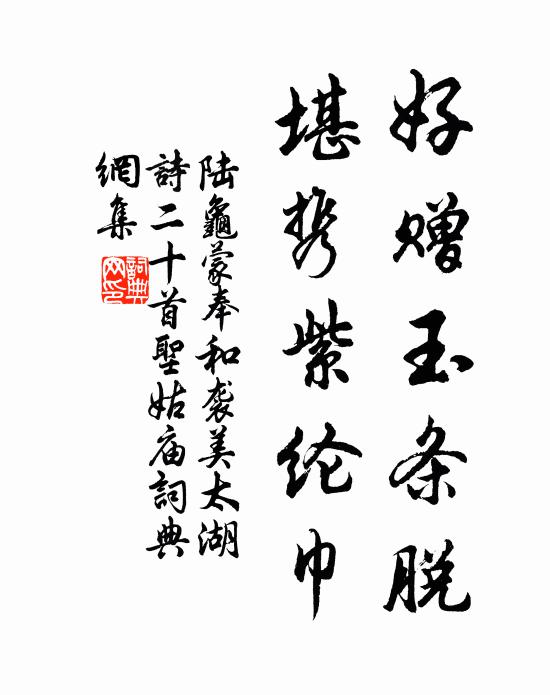 好赠玉条脱
堪携紫纶巾
陆龜蒙奉和袭美太湖
詩二十首聖姑庙詞典
網集
詞典
网印